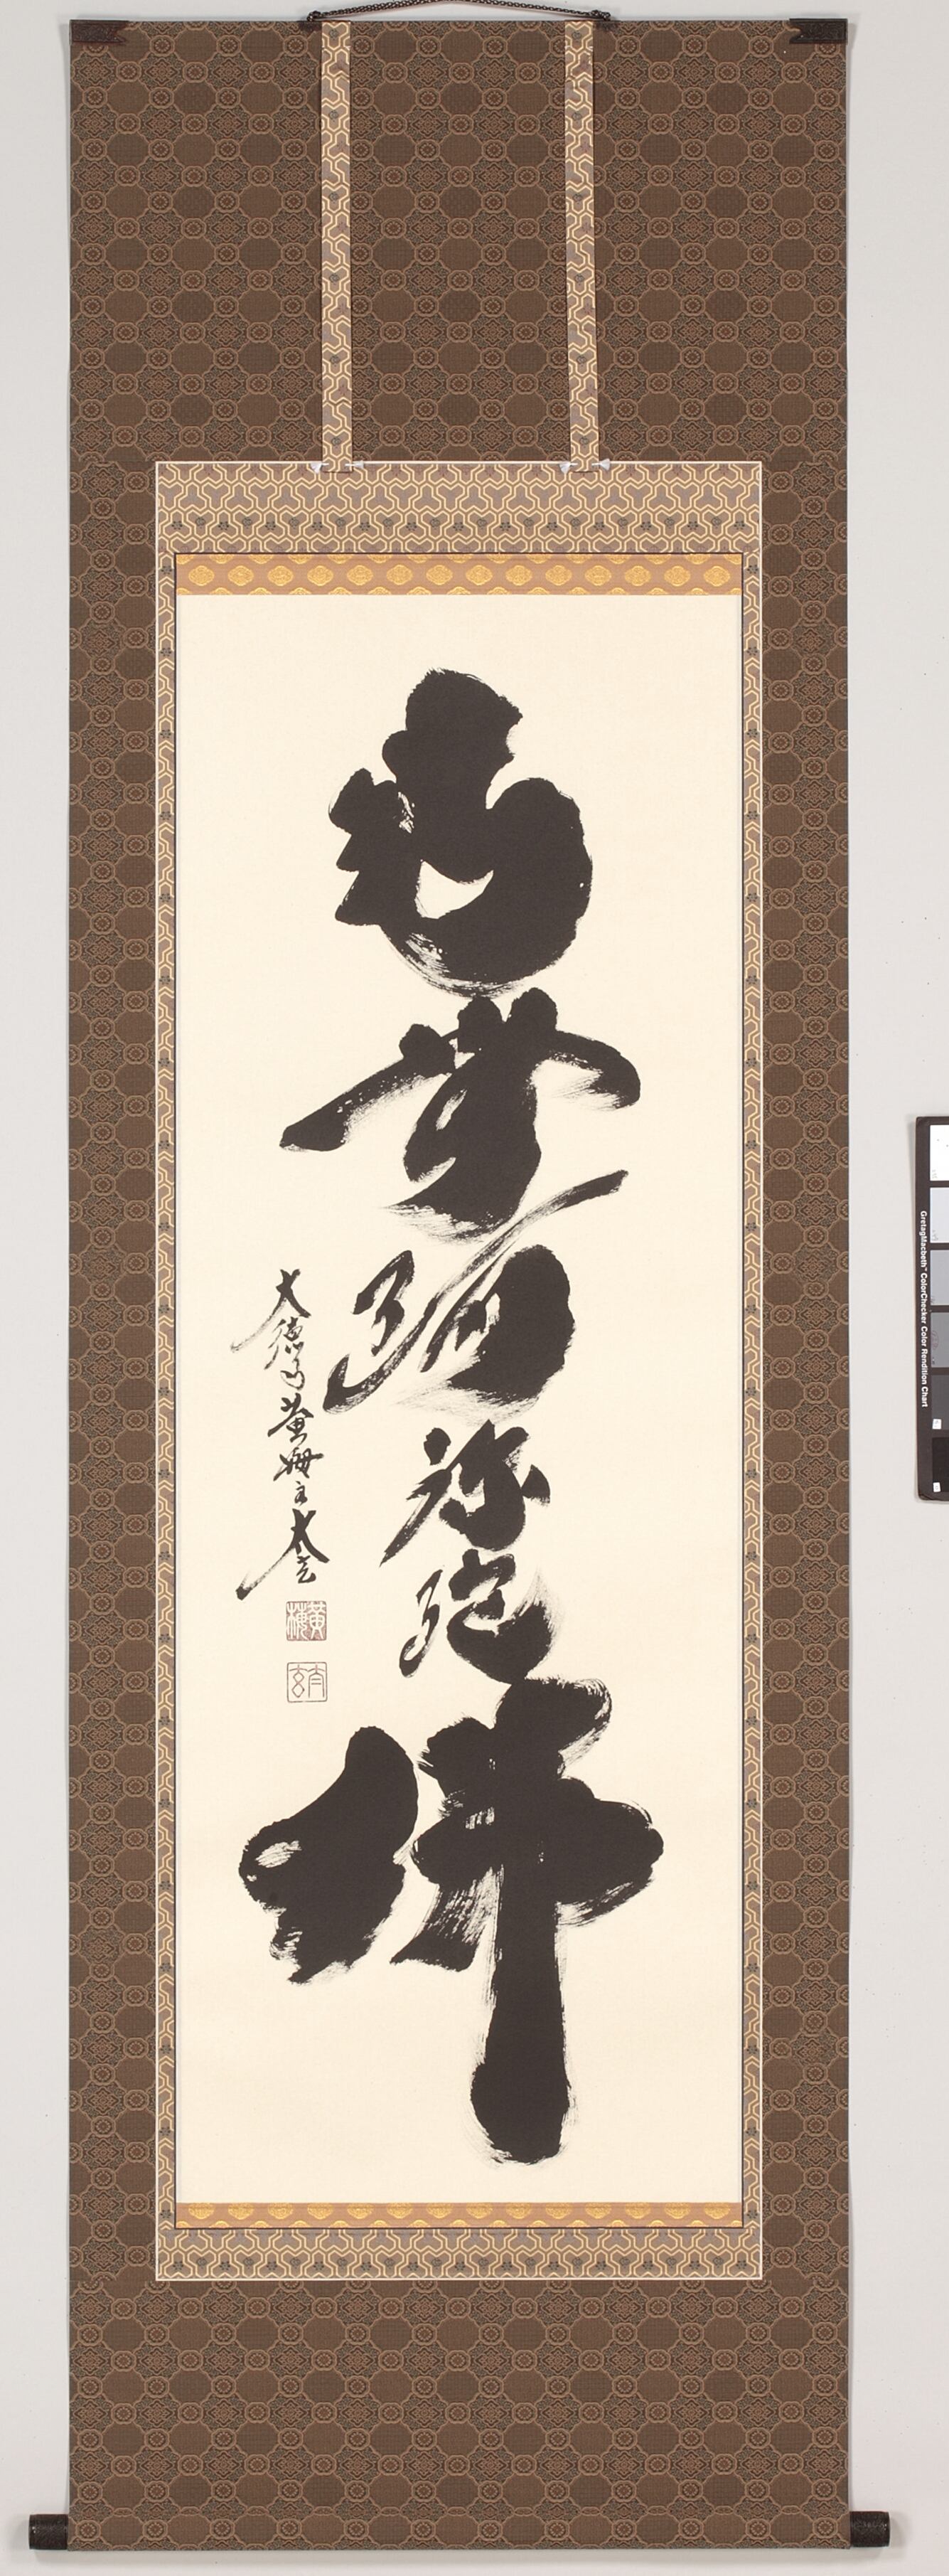 南無阿弥陀佛
大徳寺黄梅主太玄
黄梅
太玄
GretagMacbeth™ ColorChecker Color Rendition Chart